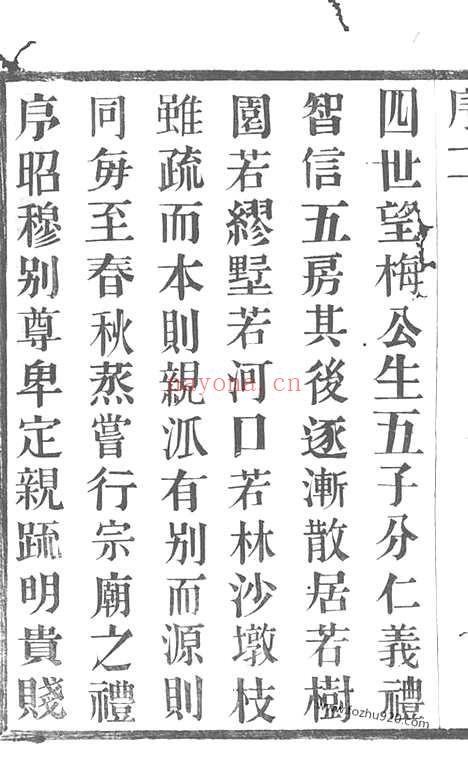 序二
四世望梅公生五子分仁義禮
智信五房其後逐漸散居若樹
園若繆墅若河口若林沙墩枝
雖疏而本則親派有别而源則
同每至春秋蒸嘗行宗廟之禮
序昭穆别尊卑定親疏明貴賤
nayona.cn
www.fozhu920.com